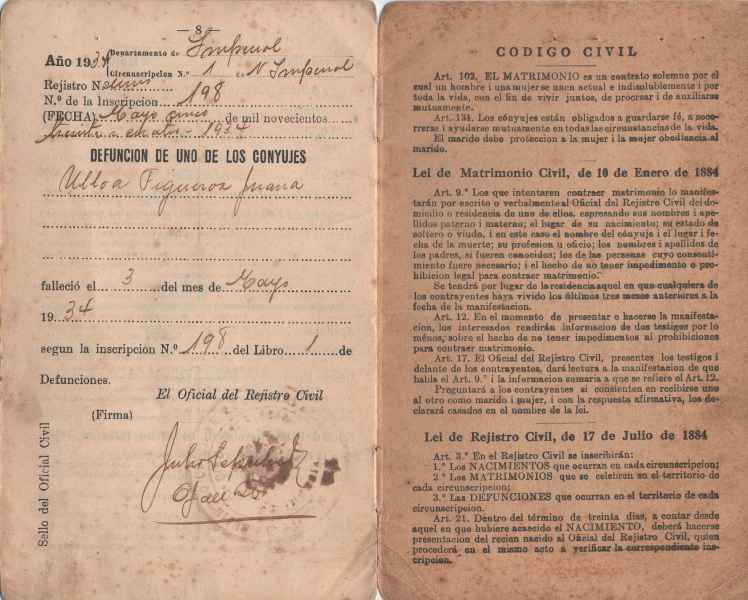 — 8 —
Año 1934 Departamento de Imperial
Circunscripcion N.º 1 N Imperial
Rejistro N
N.º de la Inscripcion 198
(FECHA) Mayo cinco de mil novecientos
treinta 1934
DEFUNCION DE UNO DE LOS CONYUJES
Ulloa Figueroa Juana
falleció el 3 del mes de Mayo
1934
segun la inscripcion N.º 198 del Libro 1 de
Defunciones.
El Oficial del Rejistro Civil
(Firma)
Sello del Oficial Civil
CODIGO CIVIL
Art. 102. EL MATRIMONIO es un contrato solemne por el
cual un hombre i una mujer se unen actual e indisolublemente i por
toda la vida, con el fin de vivir juntos, de procrear i de auxiliarse
mutuamente.
Art. 134. Los cónyujes están obligados a guardarse fé, a soco-
rrerse i ayudarse mutuamente en todas las circunstancias de la vida.
El marido debe proteccion a la mujer i la mujer obediencia al
marido.
Lei de Matrimonio Civil, de 10 de Enero de 1884
Art. 9.º Los que intentaren contraer matrimonio lo manifes-
tarán por escrito o verbalmente al Oficial del Rejistro Civil del do-
micilio o residencia de uno de ellos, espresando sus nombres i ape-
llidos paterno i materno; el lugar de su nacimiento; su estado de
soltero o viudo, i en este caso el nombre del cónyuje i el lugar i fe-
cha de la muerte; su profesion u oficio; los nombres i apellidos de
los padres, si fueren conocidos; los de las personas cuyo consenti-
miento fuere necesario; i el hecho de no tener impedimento o pro-
hibicion legal para contraer matrimonio.
Se tendrá por lugar de la residencia aquel en que cualquiera de
los contrayentes haya vivido los últimos tres meses anteriores a la
fecha de la manifestacion.
Art. 12. En el momento de presentar o hacerse la manifesta-
cion, los interesados rendirán informacion de dos testigos por lo
ménos, sobre el hecho de no tener impedimentos ni prohibiciones
para contraer matrimonio.
Art. 17. El Oficial del Rejistro Civil, presentes los testigos i
delante de los contrayentes, dará lectura a la manifestacion de que
habla el Art. 9.º i la informacion sumaria a que se refiere el Art. 12.
Preguntará a los contrayentes si consienten en recibirse uno
al otro como marido i mujer, i con la respuesta afirmativa, los de-
clarará casados en el nombre de la lei.
Lei de Rejistro Civil, de 17 de Julio de 1884
Art. 3.º En el Rejistro Civil se inscribirán:
1.º Los NACIMIENTOS que ocurran en cada circunscripcion;
2.º Los MATRIMONIOS que se celebren en el territorio de
cada circunscripcion;
3.º Las DEFUNCIONES que ocurran en el territorio de cada
circunscripcion.
Art. 21. Dentro del término de treinta dias, a contar desde
aquel en que hubiere acaecido el NACIMIENTO, deberá hacerse
presentacion del recien nacido al Oficial del Rejistro Civil, quien
procederá en el mismo acto a verificar la correspondiente ins-
cripcion.